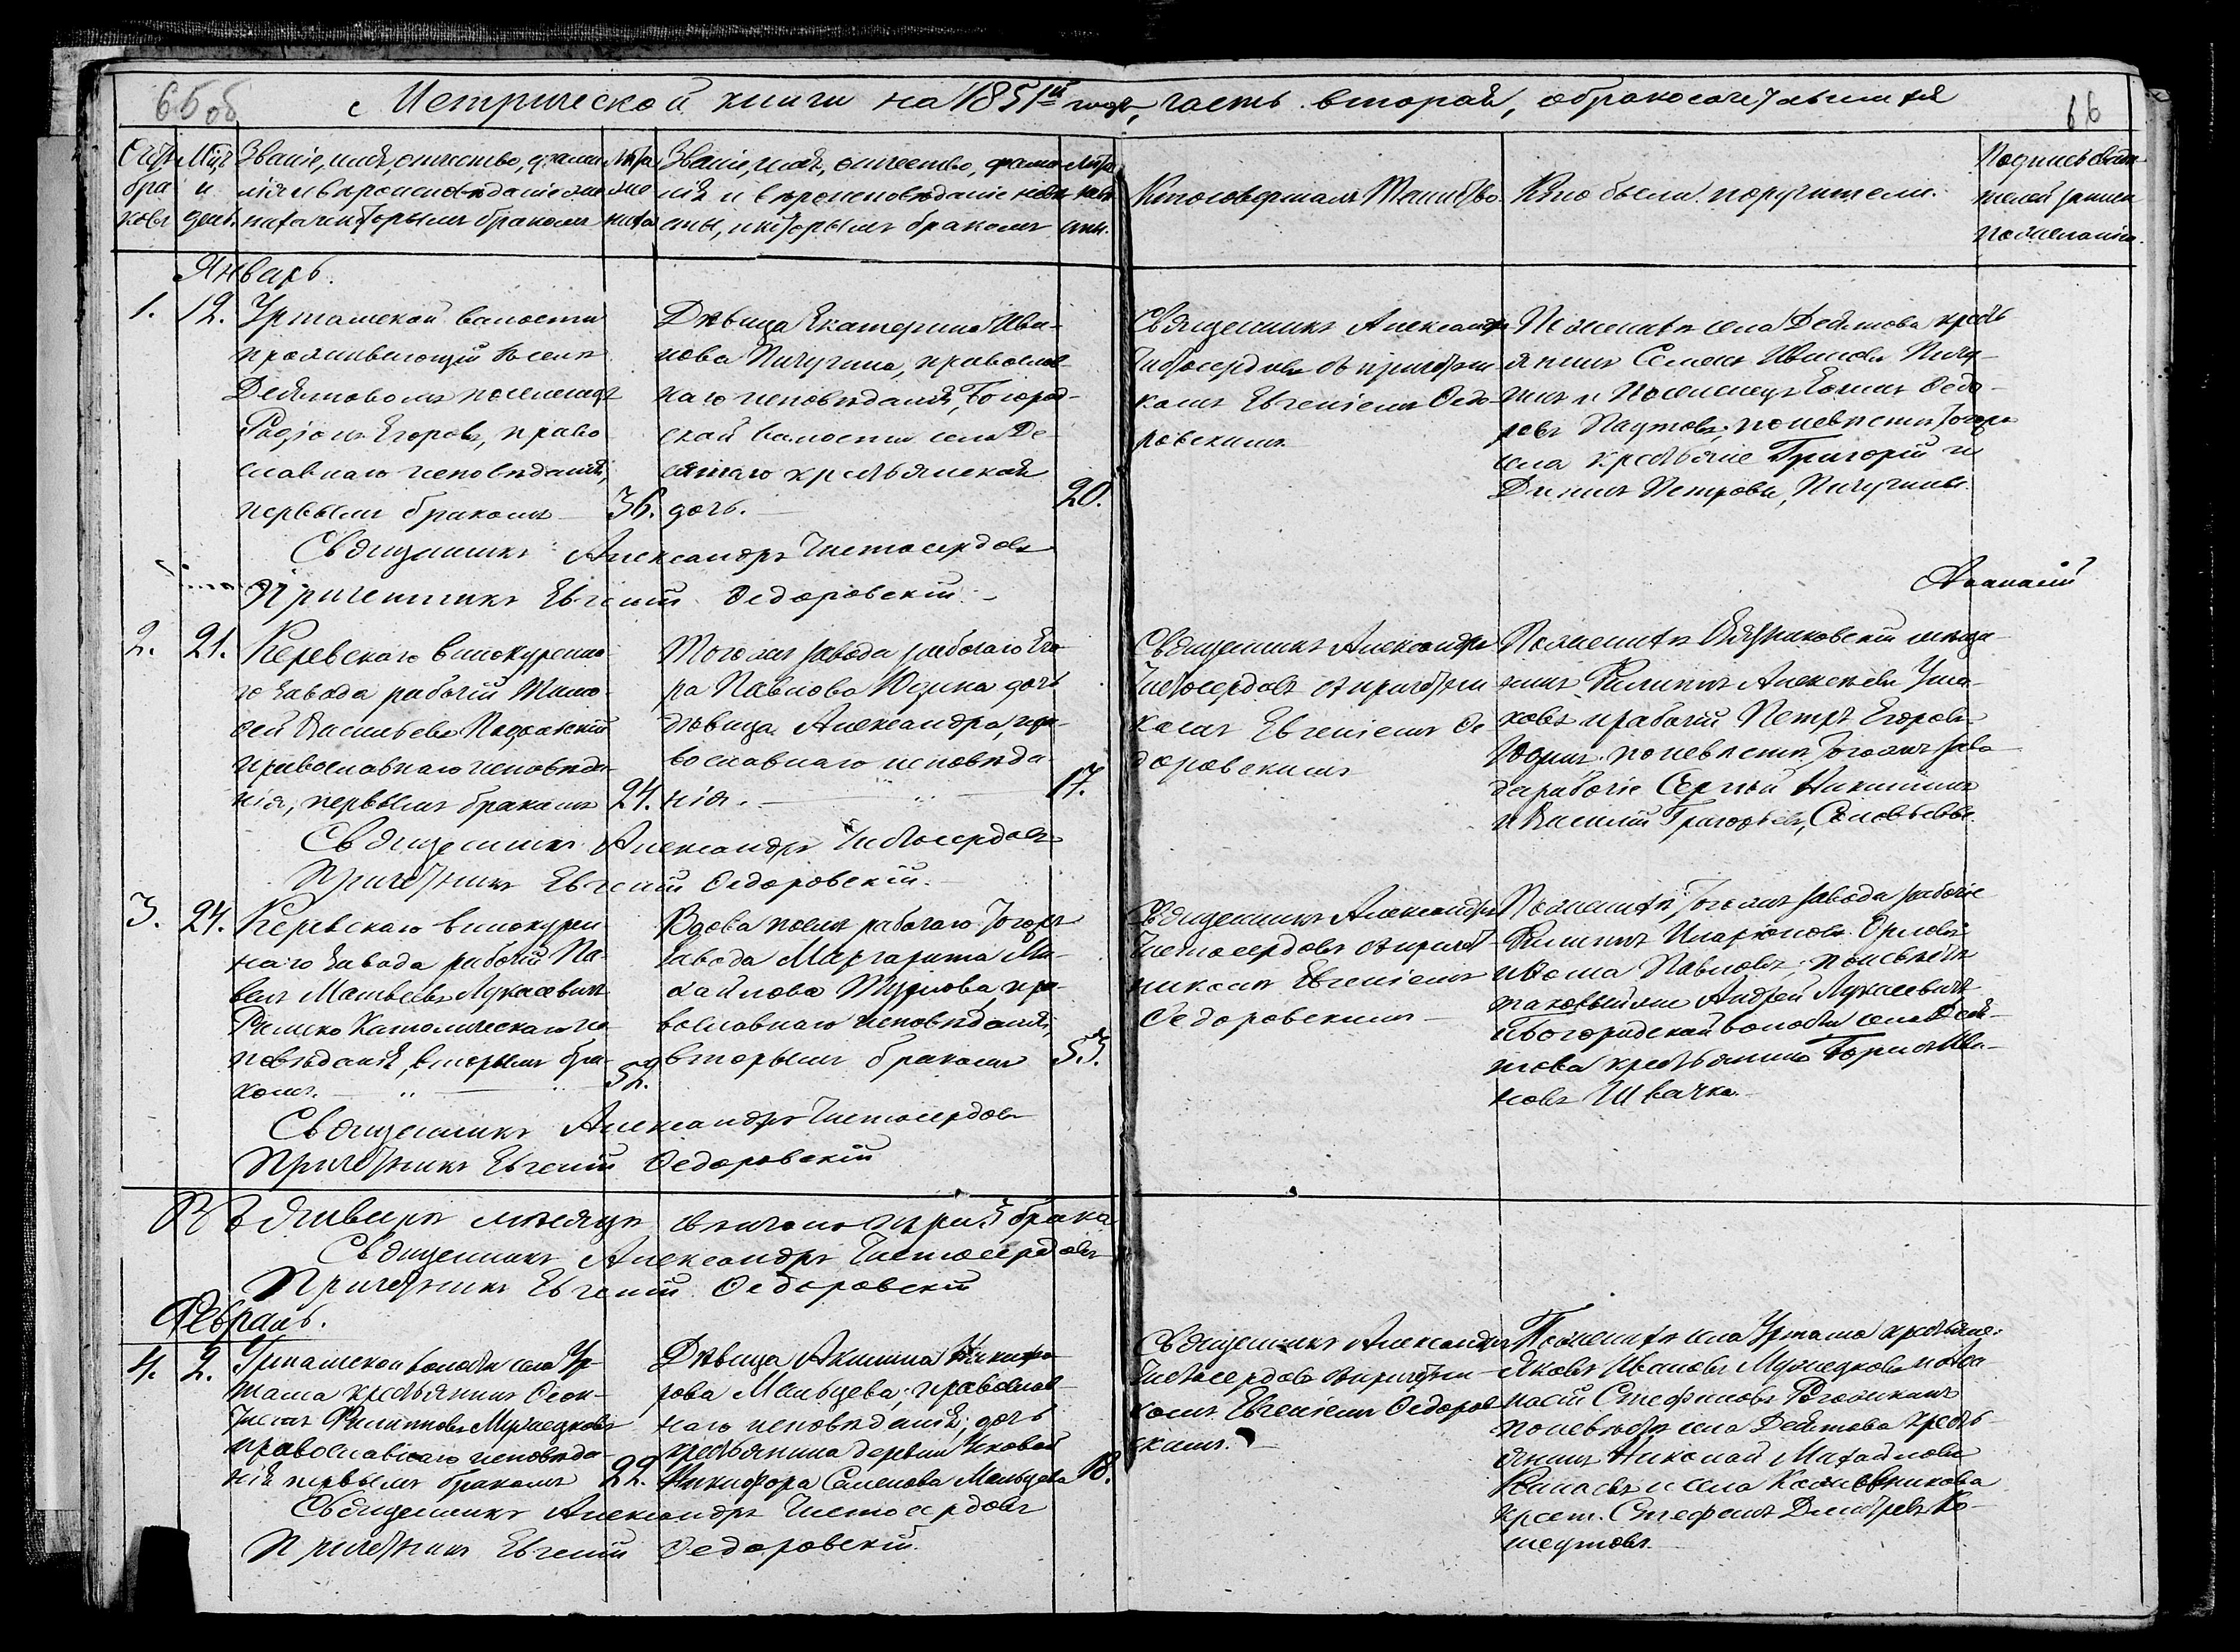 65 об
Метрической книги на 1851й годъ, часть вторая, о бракосочетавшихся
66
Счетъ браковъ
Мѣс. и день
Званіе, имя, отчество, фамилія и вѣроисповѣданіе жениха и которымъ бракомъ
Лѣта жениха
Званіе, имя, отчество, фамилія и вѣроисповѣданіе невѣсты, и которымъ бракомъ
Лѣта невѣсты
Кто совершалъ Таинство
Кто были поручители.
Подпись свидѣтелей записи по желанію.
Январь.
1. 12.
Урташской волости
проживающій въ селѣ
поселенецъ
Родіонъ Егоровъ, право
славнаго исповѣданія,
первымъ бракомъ 36.
Дѣвица Екатерина Ива-
нова Пичугина, православ-
наго исповѣданія, Богород-
ской волости села Де-
крестьянская
дочь. 20.
Священникъ Александръ
Чистосердовъ съ причетни
комъ Евгеніемъ Ѳедо-
ровскимъ
По женихѣ села кресть
янинъ Семенъ Ивановъ Пичу-
гинъ и Поселенецъ Ѳедо-
ровъ по невѣстѣ тогоже
села крестьяне Григорій и
Петровы, Пичугины.
Священникъ Александръ Чистосердовъ
Причетникъ Евгеній Ѳедоровскій.
2. 21.
Керевскаго винокуренна-
го завода рабочій Тимо-
ѳей Васильевъ
православнаго исповѣда-
нія, первымъ бракомъ 24.
Тогоже завода рабочаго Его-
ра Павлова Юдина дочь
дѣвица Александра, пра-
вославнаго исповѣда
нія. 17.
Священникъ Александръ
Чистосердовъ съ причетни
комъ Евгеніемъ Ѳе
доровскимъ
По женихѣ мѣща-
нинъ Филипъ Алексѣевъ Уша-
ковъ и рабочій Петръ Егоровъ
Юдинъ. по невѣстѣ тогоже заво
да рабочіе Сергѣй Никитинъ
и Василій Григорьевъ, Соловьевы.
Священникъ Александръ Чистосердовъ
Причетникъ Евгеній Ѳедоровскій.
3. 24.
Керевскаго винокурен
наго завода рабочій Па-
велъ Матвѣевъ Лукасевичъ
Римско Католическаго ис-
повѣданія, вторымъ бра-
комъ. 52.
Вдова послѣ рабочаго тогоже
завода Маргарита Ми-
хайлова пра-
вославнаго исповѣданія,
вторымъ бракомъ 53.
Священникъ Александръ
Чистосердовъ съ причет-
никомъ Евгеніемъ
Ѳедоровскимъ
По женихѣ тогоже завода рабочіе
Филипъ Иларіоновъ Орловъ
и Ѳома Павловъ; по невѣстѣ
таковый же Андрей Лукасевичъ
и Богородской волости села
крестьянинъ Борисъ Ива-
новъ Швачка
Священникъ Александръ Чистосердовъ
Причетникъ Евгеній Ѳедоровскій
Въ Январѣ мѣсяцѣ вѣнчано три 3 брака
Священникъ Александръ Чистосердовъ
Причетникъ Евгеній Ѳедоровскій
Февраль.
4. 2.
Урташской волости села Ур-
тама крестьянинъ Ѳеок-
тистъ Филиповъ
православнаго исповѣда-
нія первымъ бракомъ 22.
Дѣвица Акилина Никифо-
рова Мальцева; православ-
наго исповѣданія; дочь
крестьянина деревни
Никифора Семенова Мальцева 18.
Священникъ Александръ
Чистосердовъ съ причетни-
комъ Евгеніемъ Ѳедоров-
скимъ.
По женихѣ села Уртама крестьяне:
Яковъ Ивановъ
Стефановъ
по невѣстѣ села кресть-
янинъ Николай Михайловъ
и села Кожевникова
крест. Стефанъ Дмитріевъ
Священникъ Александръ Чистосердовъ
Причетникъ Евгеній Ѳедоровскій.